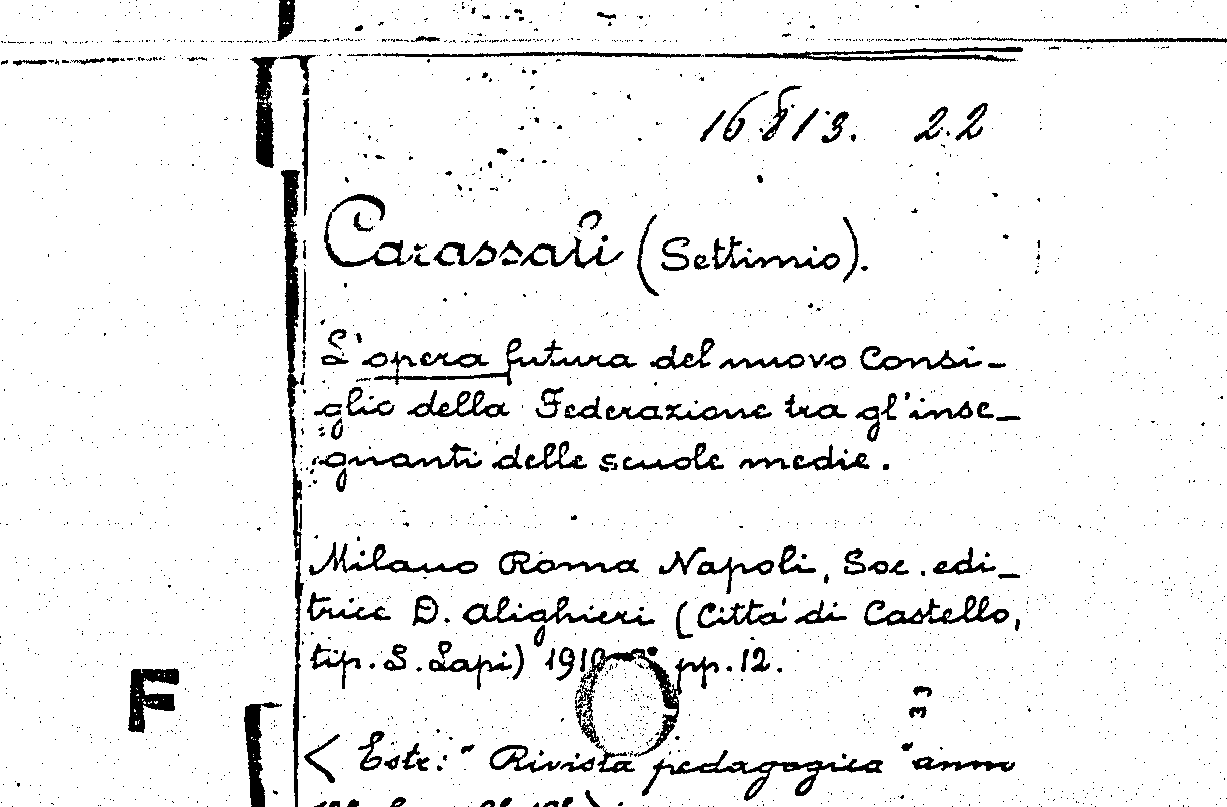 16813. 22
Carassali (Settimio).
L'opera futura del nuovo Consi-
glio della Federazione tra gl'inse-
gnanti delle scuole medie.
Milano Roma Napoli, Soc. edi-
trice D. Alighieri (Città di Castello,
tip. S. Lapi) 1910 8° pp. 12.
F
33
< Estr: "Rivista pedagogica" anno